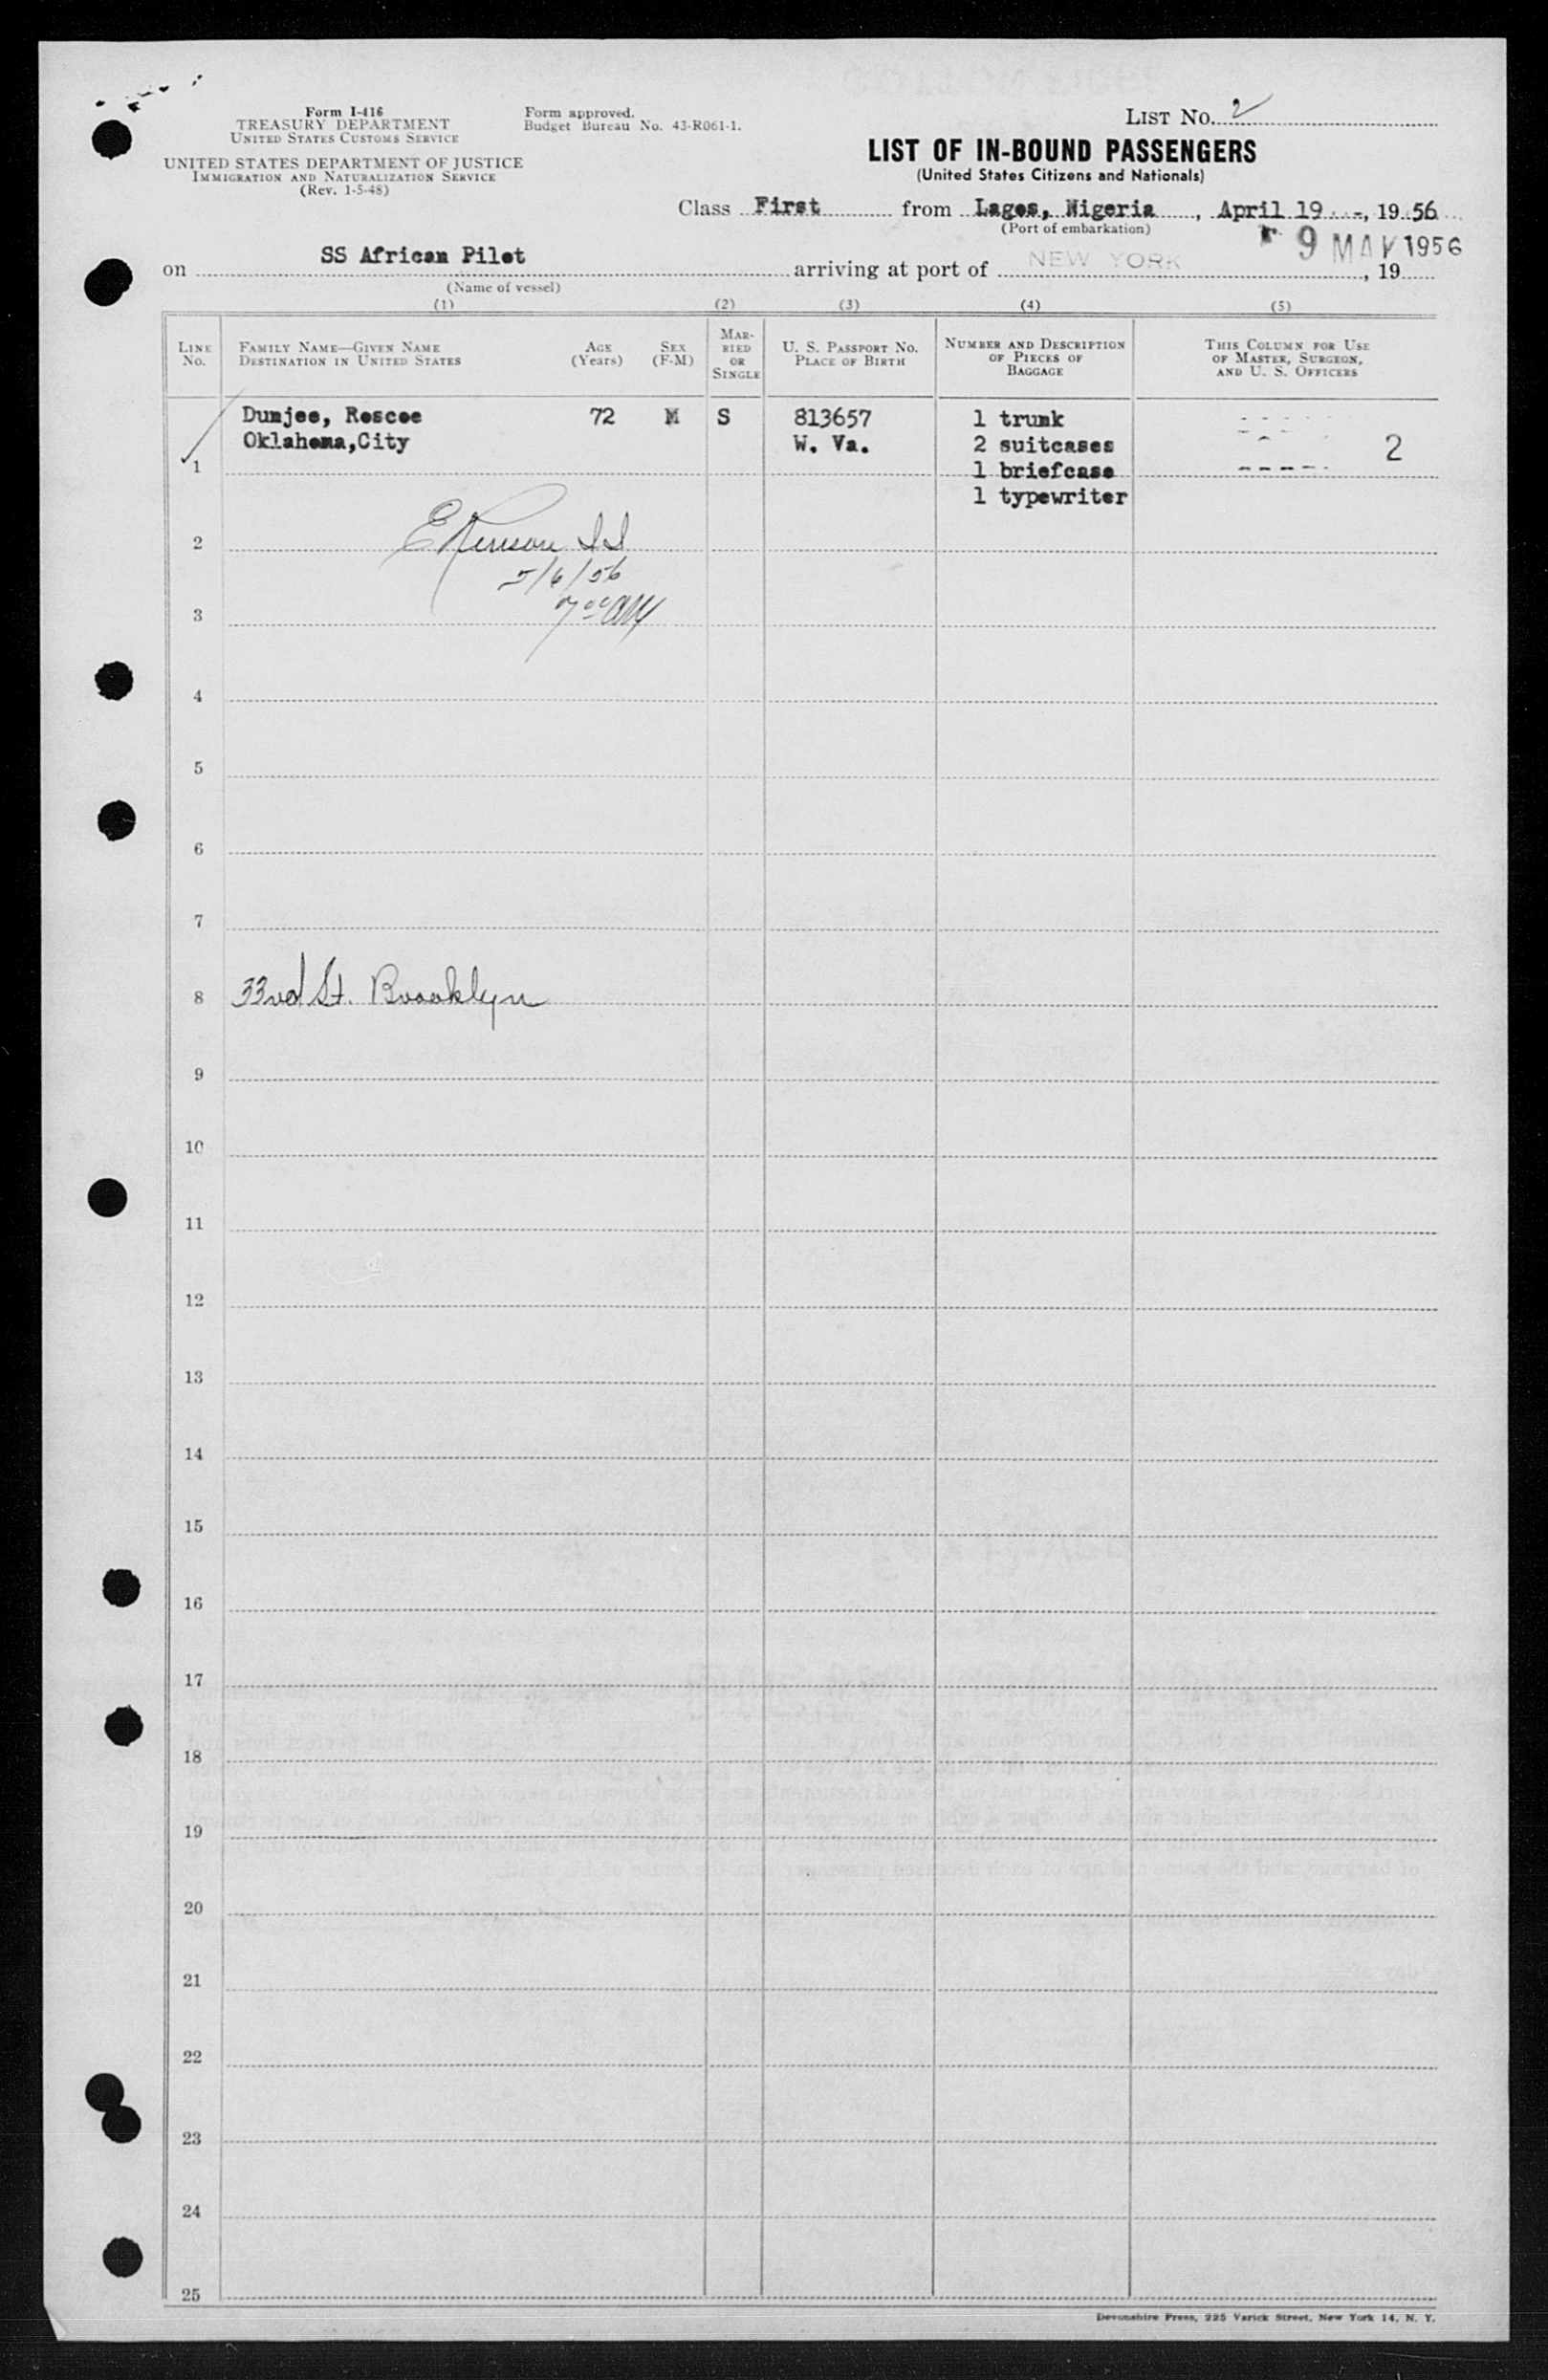 Form I-416
TREASURY DEPARTMENT
UNITED STATES CUSTOMS SERVICE
UNITED STATES DEPARTMENT OF JUSTICE
IMMIGRATION AND NATURALIZATION SERVICE
(Rev. 1-5-48)
Form approved.
Budget Bureau No. 43-R061-1.
LIST NO. 2
LIST OF IN-BOUND PASSENGERS
(United States Citizens and Nationals)
Class First from Lagos, Nigeria, April 19, 1956
(Port of embarkation)
9 MAY 1956
on SS African Pilot arriving at port of NEW YORK, 19
(Name of vessel)
(1) (2) (3) (4) (5)
LINE NO.
FAMILY NAME—GIVEN NAME
DESTINATION IN UNITED STATES
AGE (Years)
SEX (F-M)
MARRIED OR SINGLE
U. S. PASSPORT NO.
PLACE OF BIRTH
NUMBER AND DESCRIPTION OF PIECES OF BAGGAGE
THIS COLUMN FOR USE OF MASTER, SURGEON, AND U. S. OFFICERS
Dunjee, Roscoe 72 M S 813657 1 trunk
Oklahoma,City W. Va. 2 suitcases 2
1 1 briefcase
1 typewriter
2
5/6/56
3 7 00 AM
4
5
6
7
8 33rd St. Brooklyn
9
10
11
12
13
14
15
16
17
18
19
20
21
22
23
24
25
Devonshire Press, 225 Varick Street, New York 14, N. Y.